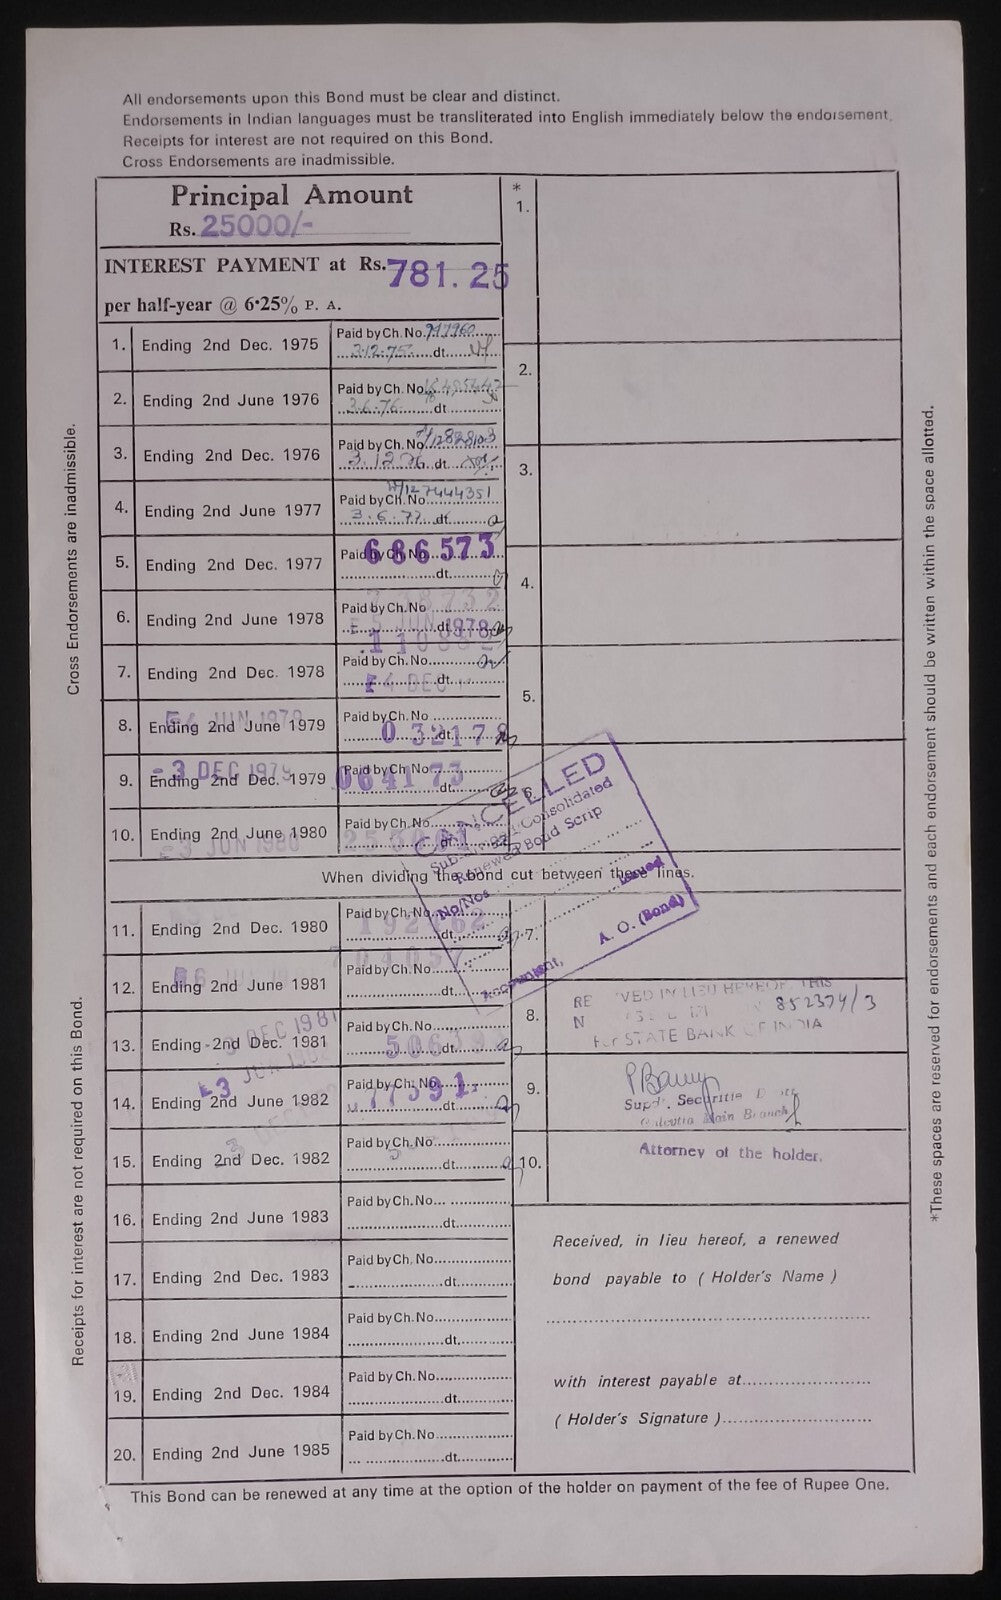 All endorsements upon this Bond must be clear and distinct.
Endorsements in Indian languages must be transliterated into English immediately below the endorsement.
Receipts for interest are not required on this Bond.
Cross Endorsements are inadmissible.
Principal Amount
Rs. 25000/-
INTEREST PAYMENT at Rs. 781.25
per half-year @ 6·25% P. A.
1. Ending 2nd Dec. 1975 Paid by Ch. No.
3.12.75 dt.
2. Ending 2nd June 1976 Paid by Ch. No.
3.6.76 dt
3. Ending 2nd Dec. 1976 Paid by Ch. No.
3.12.76 dt.
4. Ending 2nd June 1977 Paid by Ch. No.
3.6.77 dt.
5. Ending 2nd Dec. 1977 Paid by Ch. No. 686573
dt.
6. Ending 2nd June 1978 Paid by Ch. No
JUN 1978 dt.
7. Ending 2nd Dec. 1978 Paid by Ch. No.
4 DEC dt.
8. Ending 2nd June 1979 Paid by Ch. No
JUN 1979 dt.
9. Ending 2nd Dec. 1979 Paid by Ch. No. 064173
-3 DEC 1979 dt.
10. Ending 2nd June 1980 Paid by Ch. No.
-3 JUN 1980 dt.
When dividing the bond cut between these lines.
11. Ending 2nd Dec. 1980 Paid by Ch. No.
dt.
12. Ending 2nd June 1981 Paid by Ch. No.
dt.
13. Ending 2nd Dec. 1981 Paid by Ch. No.
DEC 1981 dt.
14. Ending 2nd June 1982 Paid by Ch. No.
-3 dt.
15. Ending 2nd Dec. 1982 Paid by Ch. No.
dt.
16. Ending 2nd June 1983 Paid by Ch. No.
dt.
17. Ending 2nd Dec. 1983 Paid by Ch. No.
dt.
18. Ending 2nd June 1984 Paid by Ch. No.
dt.
19. Ending 2nd Dec. 1984 Paid by Ch. No.
dt.
20. Ending 2nd June 1985 Paid by Ch. No.
dt.
*
1.
2.
3.
4.
5.
6.
7.
8.
9.
10.
CANCELLED
Consolidated
Renewed Bond Scrip
No/Nos
issued
Accountant,
A. O. (Bond)
IN LIEU HEREOF, THIS
852374/3
For STATE BANK OF INDIA
Supdt. Securities
Calcutta Main Branch
Attorney of the holder.
Received, in lieu hereof, a renewed
bond payable to ( Holder's Name )
with interest payable at
( Holder's Signature )
This Bond can be renewed at any time at the option of the holder on payment of the fee of Rupee One.
Cross Endorsements are inadmissible.
Receipts for interest are not required on this Bond.
*These spaces are reserved for endorsements and each endorsement should be written within the space allotted.